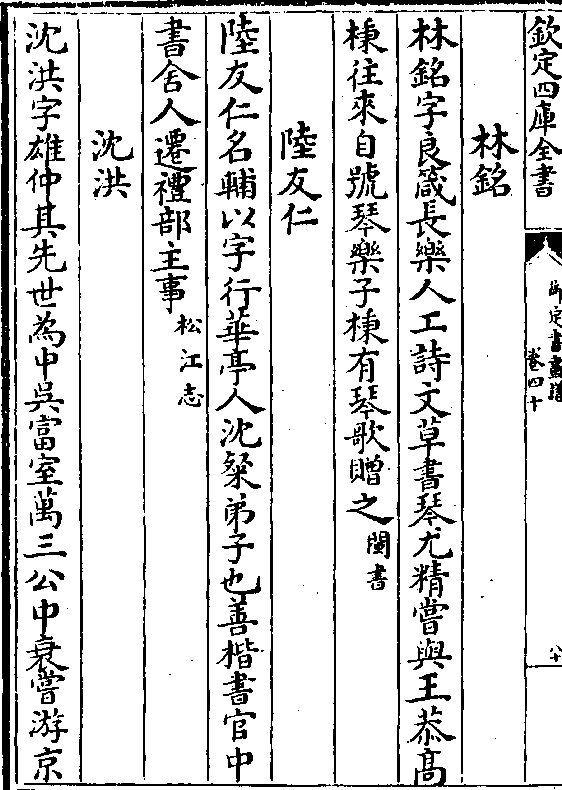 欽定四庫全書
御定書畫譜
卷四十
八十
林銘
林銘字良箴長樂人工詩文草書琴尤精嘗與王恭高
棅往來自號琴樂子棅有琴歌贈之閩書
陸友仁
陸友仁名輔以字行華亭人沈粲弟子也善楷書官中
書舍人遷禮部主事松江志
沈洪
沈洪字雄仲其先世為中吳富室萬三公中衰嘗游京